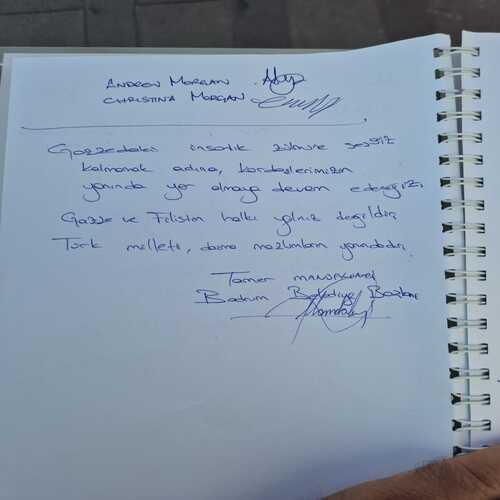 ANDREW MORGAN
CHRISTINA MORGAN
Gazzedeki insanlık zulmüne sessiz
kalmamak adına, kardeşlerimizin
yanında yer almaya devam edeceğiz.
Gazze ve Filistin halkı yalnız değildir.
Türk milleti, daima mazlumların yanındadır.
Tamer MANDALİNCİ
Bodrum Belediye Başkanı